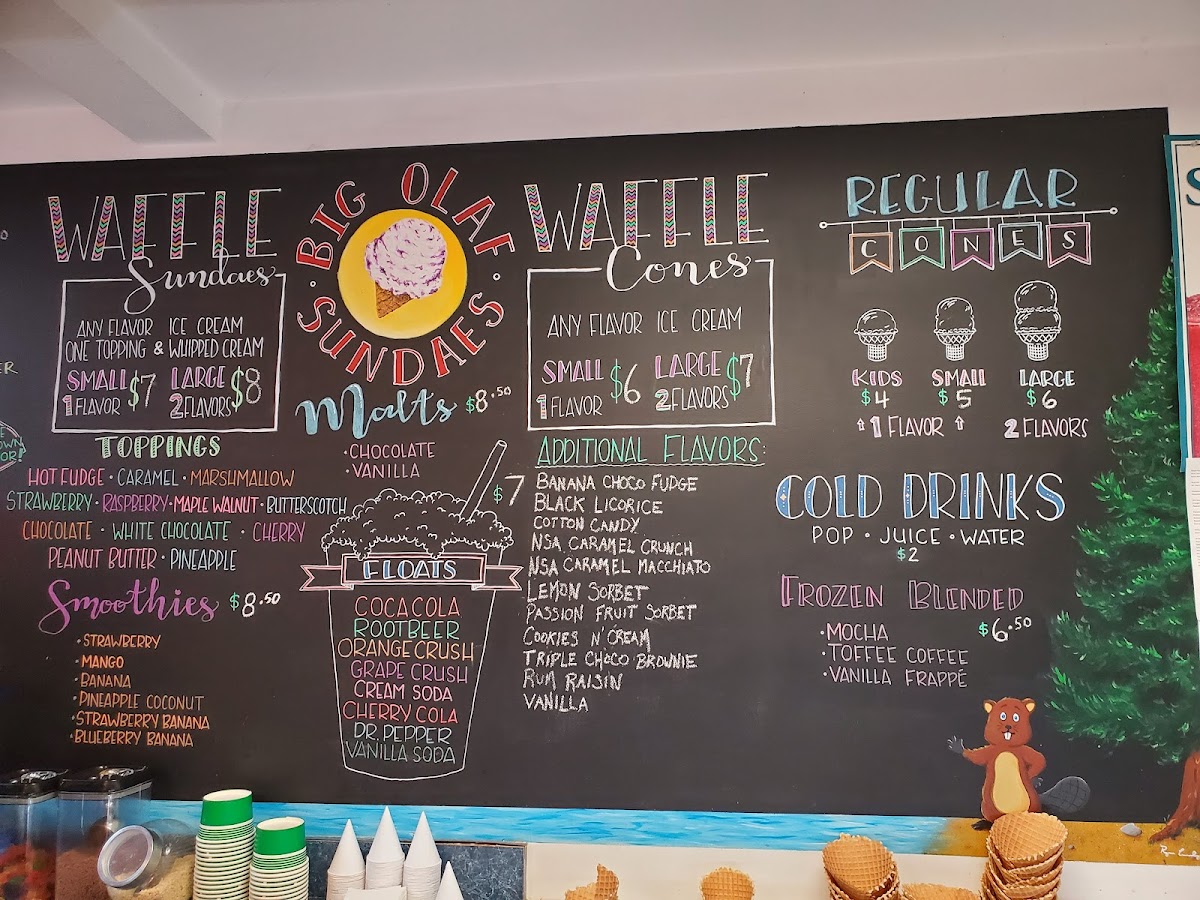 WAFFLE
Sundaes
ANY FLAVOR ICE CREAM
ONE TOPPING & WHIPPED CREAM
SMALL $7 LARGE $8
1 FLAVOR 2 FLAVORS
TOPPINGS
HOT FUDGE · CARAMEL · MARSHMALLOW
STRAWBERRY · RASPBERRY · MAPLE WALNUT · BUTTERSCOTCH
CHOCOLATE · WHITE CHOCOLATE · CHERRY
PEANUT BUTTER · PINEAPPLE
Smoothies $8.50
·STRAWBERRY
·MANGO
·BANANA
·PINEAPPLE COCONUT
·STRAWBERRY BANANA
·BLUEBERRY BANANA
BIG OLAF
·SUNDAES·
Malts $8.50
·CHOCOLATE
·VANILLA
$7
FLOATS
COCA COLA
ROOTBEER
ORANGE CRUSH
GRAPE CRUSH
CREAM SODA
CHERRY COLA
DR. PEPPER
VANILLA SODA
WAFFLE
Cones
ANY FLAVOR ICE CREAM
SMALL $6 LARGE $7
1 FLAVOR 2 FLAVORS
ADDITIONAL FLAVORS:
BANANA CHOCO FUDGE
BLACK LICORICE
COTTON CANDY
NSA CARAMEL CRUNCH
NSA CARAMEL MACCHIATO
LEMON SORBET
PASSION FRUIT SORBET
COOKIES N' CREAM
TRIPLE CHOCO BROWNIE
RUM RAISIN
VANILLA
REGULAR
CONES
KIDS SMALL LARGE
$4 $5 $6
↑ 1 FLAVOR ↑ 2 FLAVORS
COLD DRINKS
POP · JUICE · WATER
$2
FROZEN BLENDED
$6.50
·MOCHA
·TOFFEE COFFEE
·VANILLA FRAPPÉ